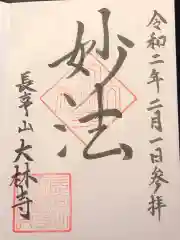 令和二年二月一日参拝
妙法
長亨山
大林寺